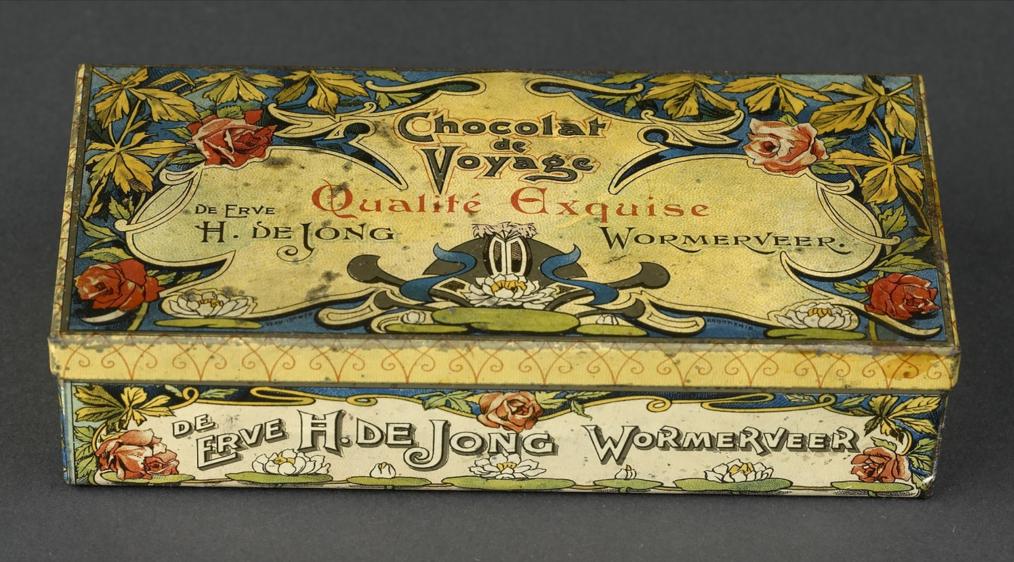 Chocolat
de
Voyage
Qualité Exquise
DE ERVE
H. DE JONG WORMERVEER.
DE ERVE H. DE JONG WORMERVEER